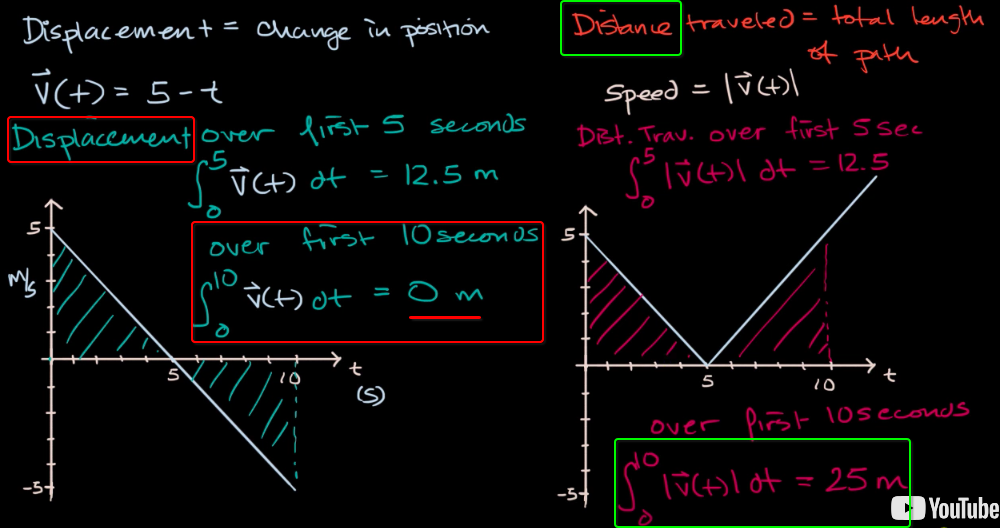 Displacement = change in position
v⃗(t) = 5 - t
Displacement over first 5 seconds
∫₀⁵ v⃗(t) dt = 12.5 m
over first 10 seconds
∫₀¹⁰ v⃗(t) dt = 0 m
5
m/s
5
10
t
(s)
-5
Distance traveled = total length
of path
Speed = |v⃗(t)|
Dist. Trav. over first 5 sec
∫₀⁵ |v⃗(t)| dt = 12.5
5
5
10
t
over first 10 seconds
∫₀¹⁰ |v⃗(t)| dt = 25 m
-5
YouTube